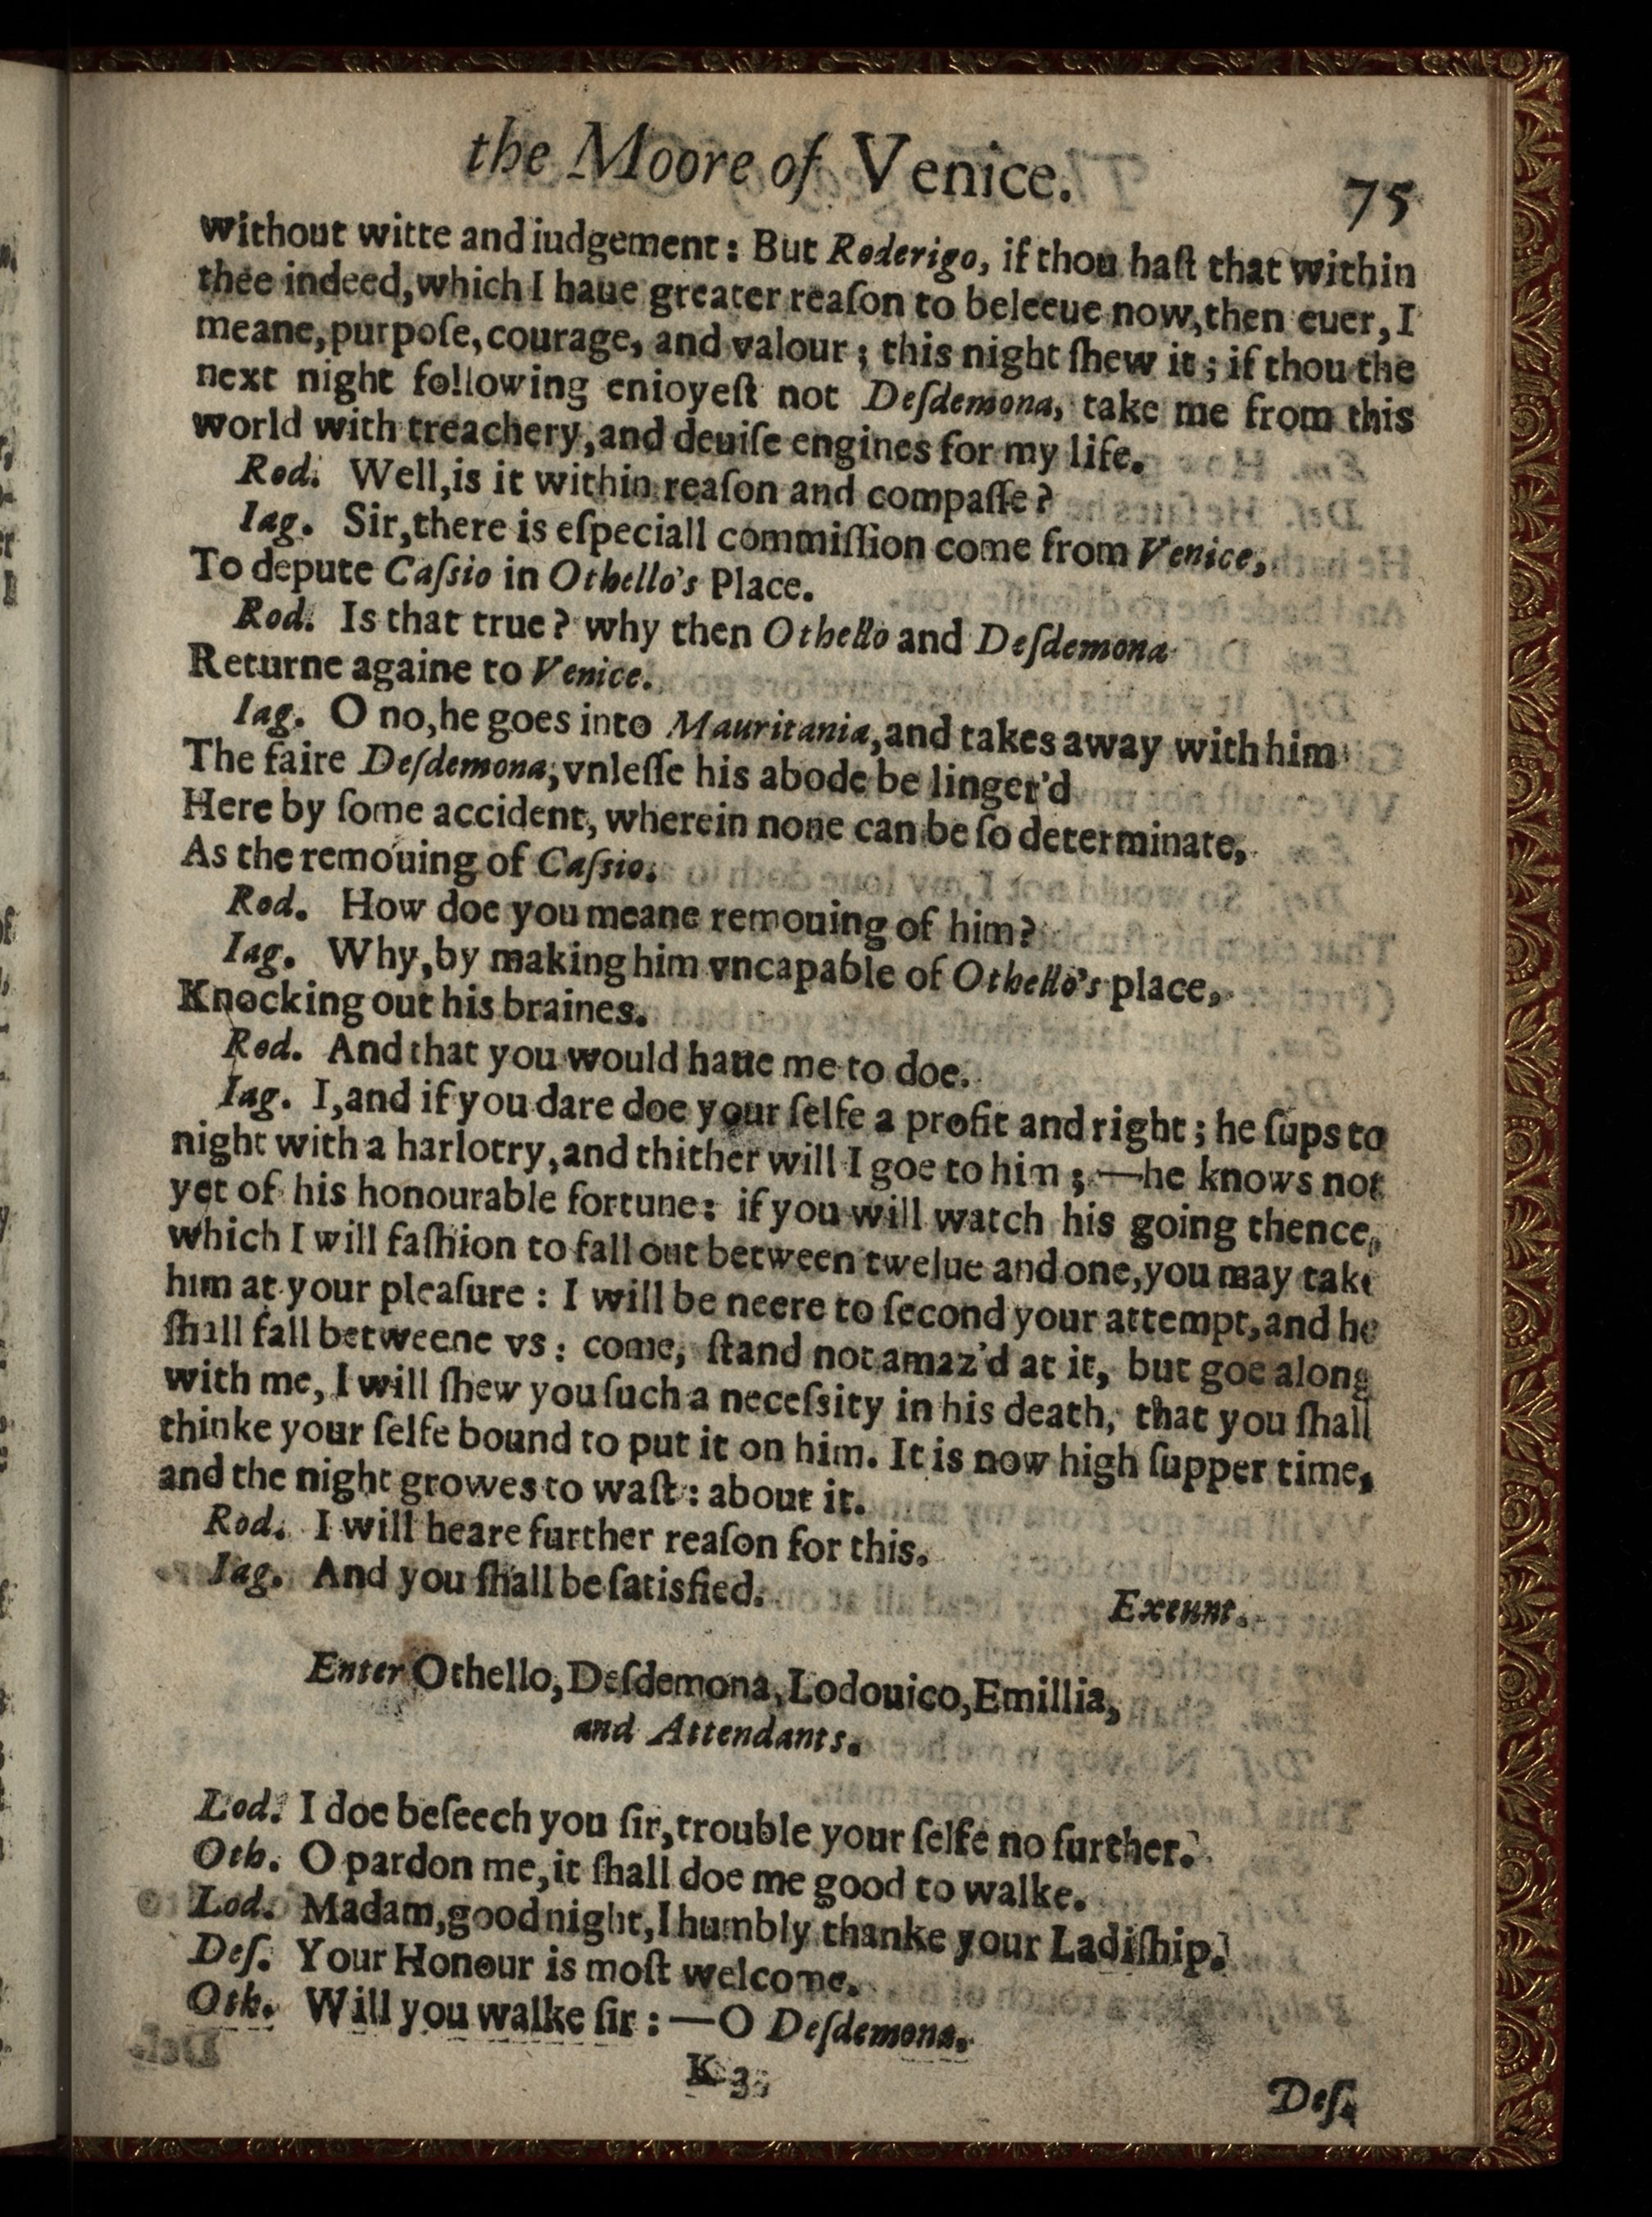 the Moore of Venice. 75
without witte and iudgement: But Roderigo, if thou haſt that within
thee indeed, which I haue greater reaſon to beleeue now, then euer, I
meane, purpoſe, courage, and valour; this night ſhew it; if thou the
next night following enioyeſt not Deſdemona, take me from this
world with treachery, and deuiſe engines for my life.
Rod. Well, is it within reaſon and compaſſe?
Iag. Sir, there is eſpeciall commiſſion come from Venice,
To depute Caſsio in Othello's Place.
Rod. Is that true? why then Othello and Deſdemona
Returne againe to Venice.
Iag. O no, he goes into Mauritania, and takes away with him
The faire Deſdemona, vnleſſe his abode be linger'd
Here by ſome accident, wherein none can be ſo determinate,
As the remouing of Caſsio.
Rod. How doe you meane remouing of him?
Iag. Why, by making him vncapable of Othello's place,
Knocking out his braines.
Rod. And that you would haue me to doe.
Iag. I, and if you dare doe your ſelfe a profit and right; he ſups to
night with a harlotry, and thither will I goe to him; —he knows not
yet of his honourable fortune: if you will watch his going thence,
which I will faſhion to fall out between twelue and one, you may take
him at your pleaſure: I will be neere to ſecond your attempt, and he
ſhall fall betweene vs: come, ſtand not amaz'd at it, but goe along
with me, I will ſhew you ſuch a neceſsity in his death, that you ſhall
thinke your ſelfe bound to put it on him. It is now high ſupper time,
and the night growes to waſt: about it.
Rod. I will heare further reaſon for this.
Iag. And you ſhall be ſatisfied.
Exeunt.
Enter Othello, Deſdemona, Lodouico, Emillia,
and Attendants.
Lod. I doe beſeech you ſir, trouble your ſelfe no further.
Oth. O pardon me, it ſhall doe me good to walke.
Lod. Madam, good night, I humbly thanke your Ladiſhip.
Deſ. Your Honour is moſt welcome.
Oth. Will you walke ſir: —O Deſdemona.
K 3
Deſ.